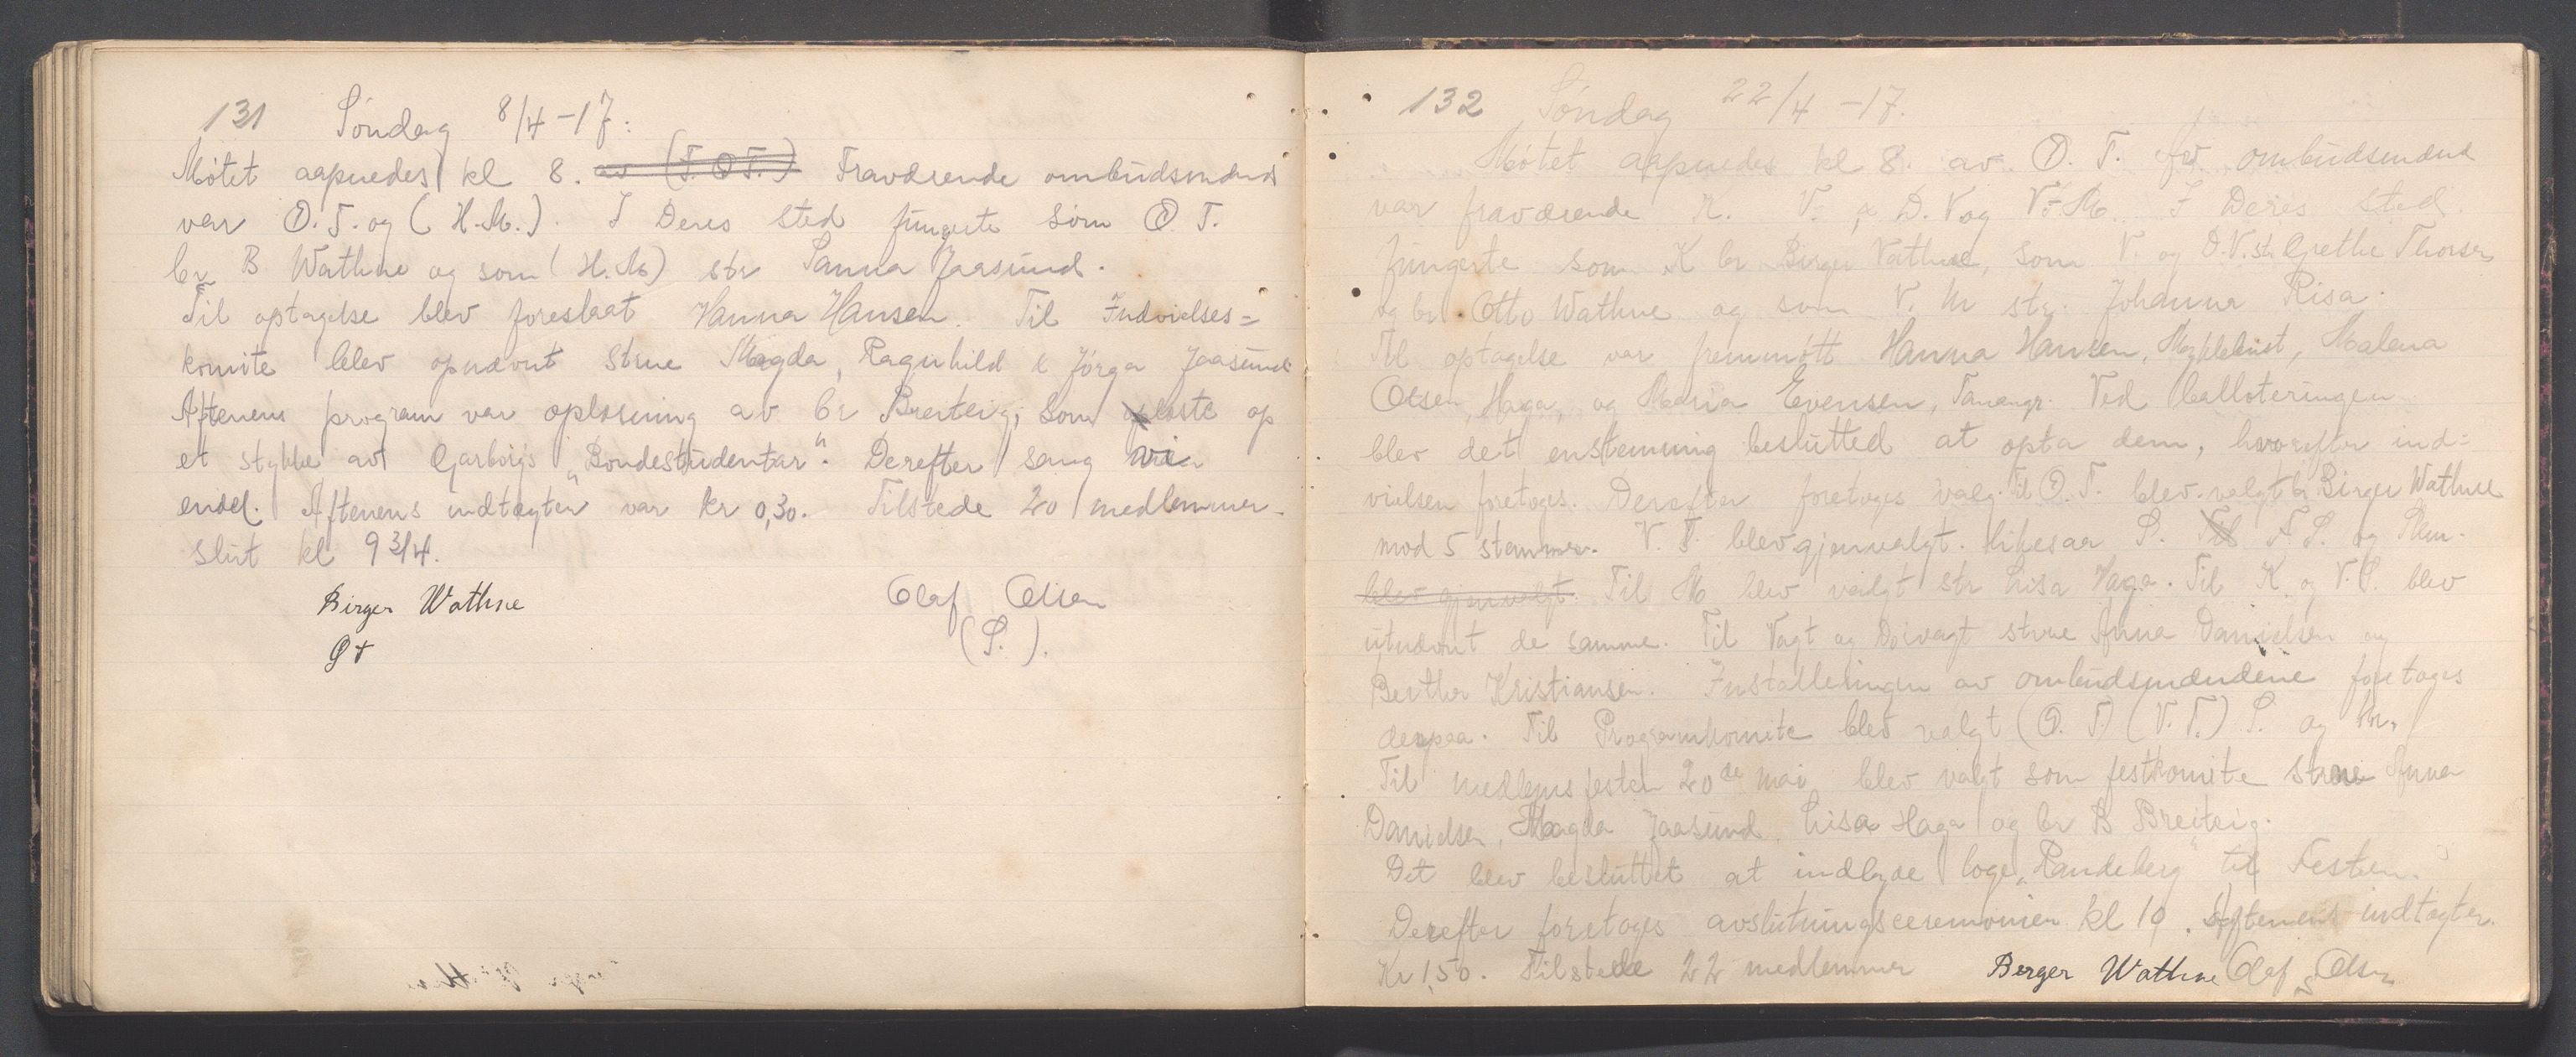 131 Søndag 8/4 -17:
Møtet aapnedes kl 8. av (F. Ø T.) Fraværende ombudsmænd
var Ø. T. og (H. M.). I Deres sted fungerte som Ø T.
br B Wathne og som (H. M) str Sanna Jaasund.
Til optagelse blev foreslaat Hanna Hansen. Til Indvielses=
komite blev opnævnt strne Magda, Ragnhild & Jørga Jaasund
Aftenens program var oplæsning av br Breiteig, som læste op
et stykke av Garborgs "Bondestudentar". Derefter sang vi
endel. Aftenens indtægter var kr 0,30. Tilstede 20 medlemmer.
slut kl 9 3/4.
Birger Wathne
Øt
Olaf Olsen
(S.).
132 Søndag 22/4 -17.
Møtet aapnedes kl 8. av Ø. T. Av ombudsmænd
var fraværende K. V. D. V og V. M. I Deres sted
fungerte som K br Birger Vathne, som V. og D.V. str Grethe Thorsen
og br Otto Wathne og som V. M str. Johanna Risa.
Til optagelse var fremmøtt Hanna Hansen, Myklebust, Malena
Olsen, Haga, og Maria Evensen, Tananger. Ved balloteringen
blev det enstemmig beslutted at opta dem, hvorefter ind=
vielsen foretoges. Derefter foretoges valg. Til Ø. T. blev valgt br Birger Wathne
mod 5 stemmer. V. T. blev gjenvalgt. likesaa S. Til F. S. og
blev gjenvalgt. Til M blev valgt str Lisa Haga. Til K og V. S. blev
utnævnt de samme. Til Vagt og Dørvagt strne Anna Danielsen og
Berther Kristiansen. Installeringen av ombudsmændene foretoges
derpaa. Til Programkomite blev valgt (Ø. T) (V. T.) S. og M.
Til medlemsfesten 20de mai blev valgt som festkomite strne Anna
Danielsen, Magda Jaasund, Lisa Haga og br B Breiteig.
Det blev besluttet at indbyde loge "Randeberg" til Festen.
Derefter foretoges avslutningsceremonien kl 10. Aftenens indtægter
Kr 1,50. Tilstede 22 medlemmer Berger Wathne Olaf Olsen
S